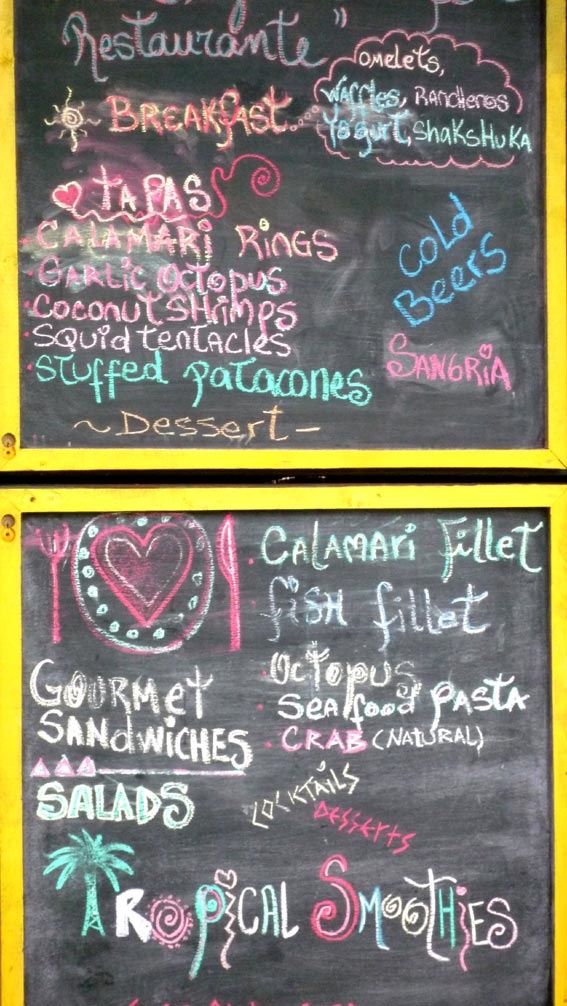 Restaurante"
OMelets,
Waffles, RANCHeROS
YoguRt, SHaKsHUKA
BREAKfAST.
TAPAS
CALAMARi RiNGS
GARLiC OCTOPUS
COCONUT SHRiMPS
SQUiD TENTACLES
STUffed PATACONES
~Dessert-
COLD
BeeRS
SANGRiA
CALAMARi fiLLeT
fiSH fiLLeT
OCTOPUS
SeAfood PASTA
CRAB (NATURAL)
GOURMeT
SANdWiCHES
SALADS
COCKTAiLS
DeSSeRTS
TROPiCAL SMOOTHiES